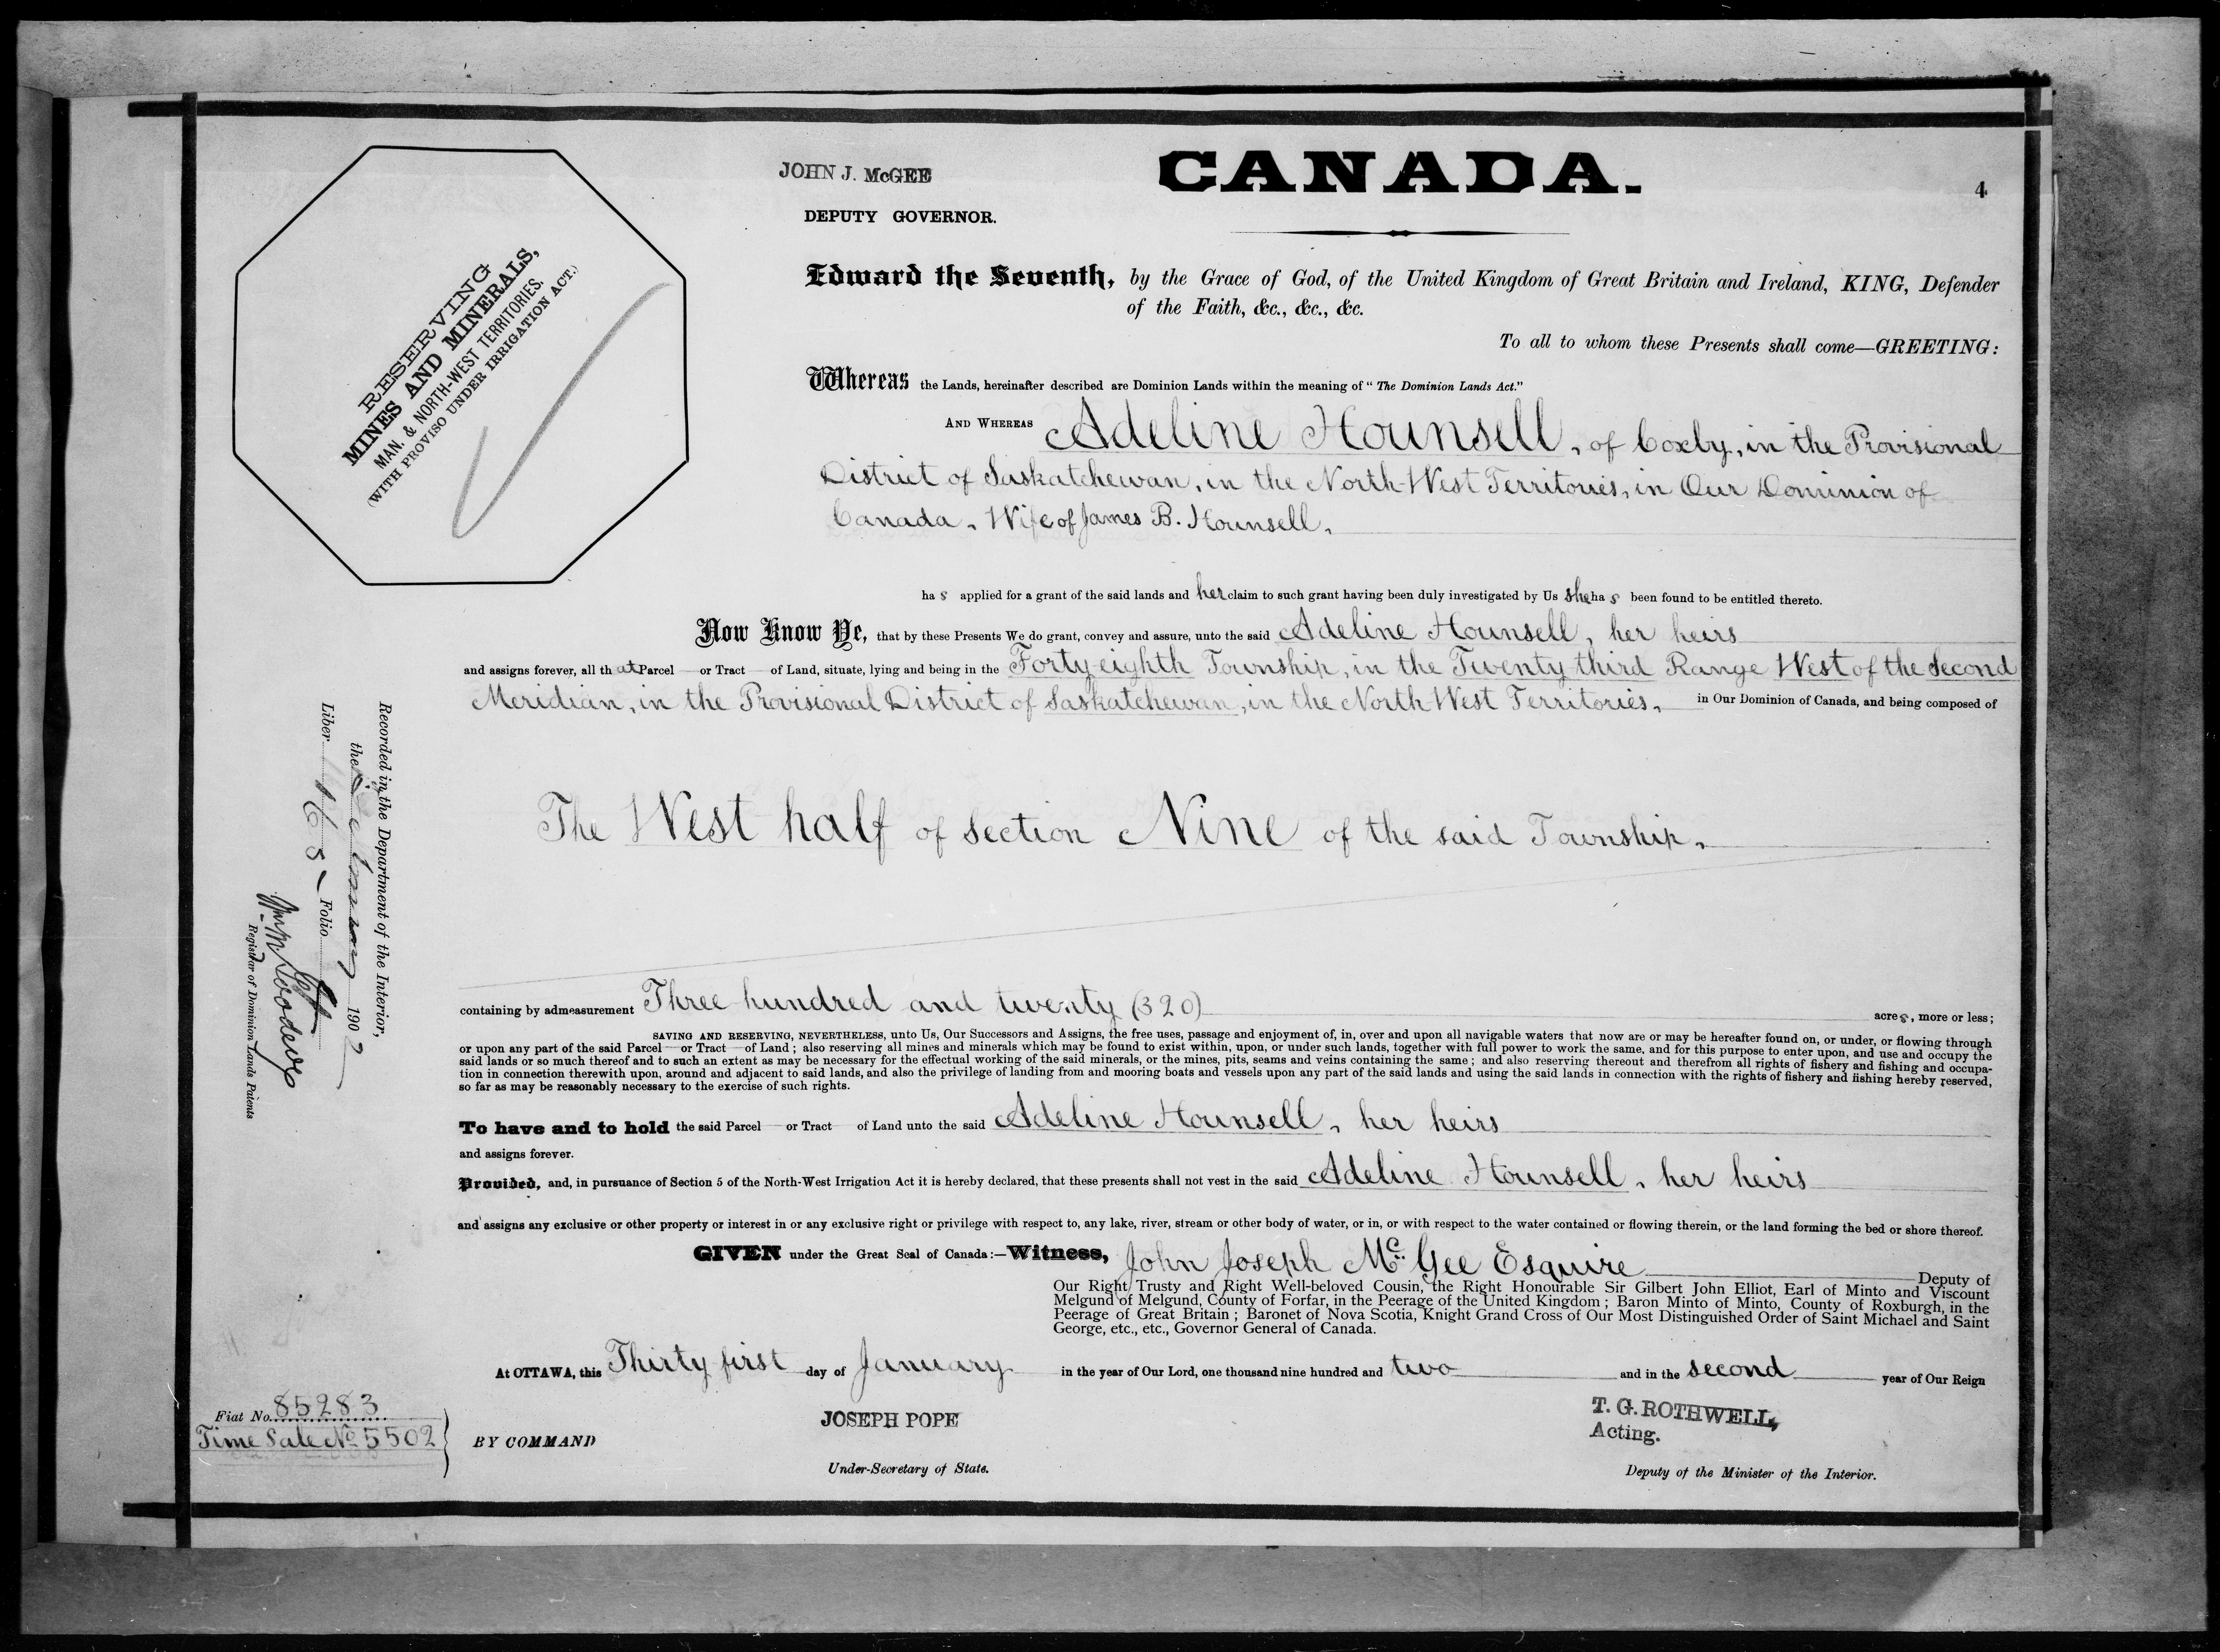 JOHN J. McGEE
CANADA.
4
DEPUTY GOVERNOR.
RESERVING
MINES AND MINERALS,
MAN. & NORTH-WEST TERRITORIES.
(WITH PROVISO UNDER IRRIGATION ACT.)
Edward the Seventh, by the Grace of God, of the United Kingdom of Great Britain and Ireland, KING, Defender
of the Faith, &c., &c., &c.
To all to whom these Presents shall come—GREETING:
Whereas the Lands, hereinafter described are Dominion Lands within the meaning of "The Dominion Lands Act."
AND WHEREAS Adeline Hounsell, of Coxby, in the Provisional
District of Saskatchewan, in the North-West Territories, in Our Dominion of
Canada, Wife of James B. Hounsell,
has applied for a grant of the said lands and her claim to such grant having been duly investigated by Us she has been found to be entitled thereto.
Now Know Ye, that by these Presents We do grant, convey and assure, unto the said Adeline Hounsell, her heirs
and assigns forever, all that Parcel or Tract of Land, situate, lying and being in the Forty-eighth Township, in the Twenty-third Range West of the Second
Meridian, in the Provisional District of Saskatchewan, in the North-West Territories, in Our Dominion of Canada, and being composed of
The West half of Section Nine of the said Township,
containing by admeasurement Three hundred and twenty (320) acres, more or less;
SAVING AND RESERVING, NEVERTHELESS, unto Us, Our Successors and Assigns, the free uses, passage and enjoyment of, in, over and upon all navigable waters that now are or may be hereafter found on, or under, or flowing through
or upon any part of the said Parcel or Tract of Land; also reserving all mines and minerals which may be found to exist within, upon, or under such lands, together with full power to work the same, and for this purpose to enter upon, and use and occupy the
said lands or so much thereof and to such an extent as may be necessary for the effectual working of the said minerals, or the mines, pits, seams and veins containing the same; and also reserving thereout and therefrom all rights of fishery and fishing and occupa-
tion in connection therewith upon, around and adjacent to said lands, and also the privilege of landing from and mooring boats and vessels upon any part of the said lands and using the said lands in connection with the rights of fishery and fishing hereby reserved,
so far as may be reasonably necessary to the exercise of such rights.
To have and to hold the said Parcel or Tract of Land unto the said Adeline Hounsell, her heirs
and assigns forever.
Provided, and, in pursuance of Section 5 of the North-West Irrigation Act it is hereby declared, that these presents shall not vest in the said Adeline Hounsell, her heirs
and assigns any exclusive or other property or interest in or any exclusive right or privilege with respect to, any lake, river, stream or other body of water, or in, or with respect to the water contained or flowing therein, or the land forming the bed or shore thereof.
GIVEN under the Great Seal of Canada:—Witness, John Joseph McGee Esquire Deputy of
Our Right Trusty and Right Well-beloved Cousin, the Right Honourable Sir Gilbert John Elliot, Earl of Minto and Viscount
Melgund of Melgund, County of Forfar, in the Peerage of the United Kingdom; Baron Minto of Minto, County of Roxburgh, in the
Peerage of Great Britain; Baronet of Nova Scotia, Knight Grand Cross of Our Most Distinguished Order of Saint Michael and Saint
George, etc., etc., Governor General of Canada.
At OTTAWA, this Thirty first day of January in the year of Our Lord, one thousand nine hundred and two and in the second year of Our Reign
Fiat No. 85283
Time Sale No 5502
BY COMMAND
JOSEPH POPE
Under-Secretary of State.
T. G. ROTHWELL,
Acting.
Deputy of the Minister of the Interior.
Recorded in the Department of the Interior,
the 1902
Liber 165 Folio
Registrar of Dominion Lands Patents